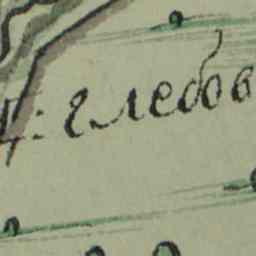 д: глебов